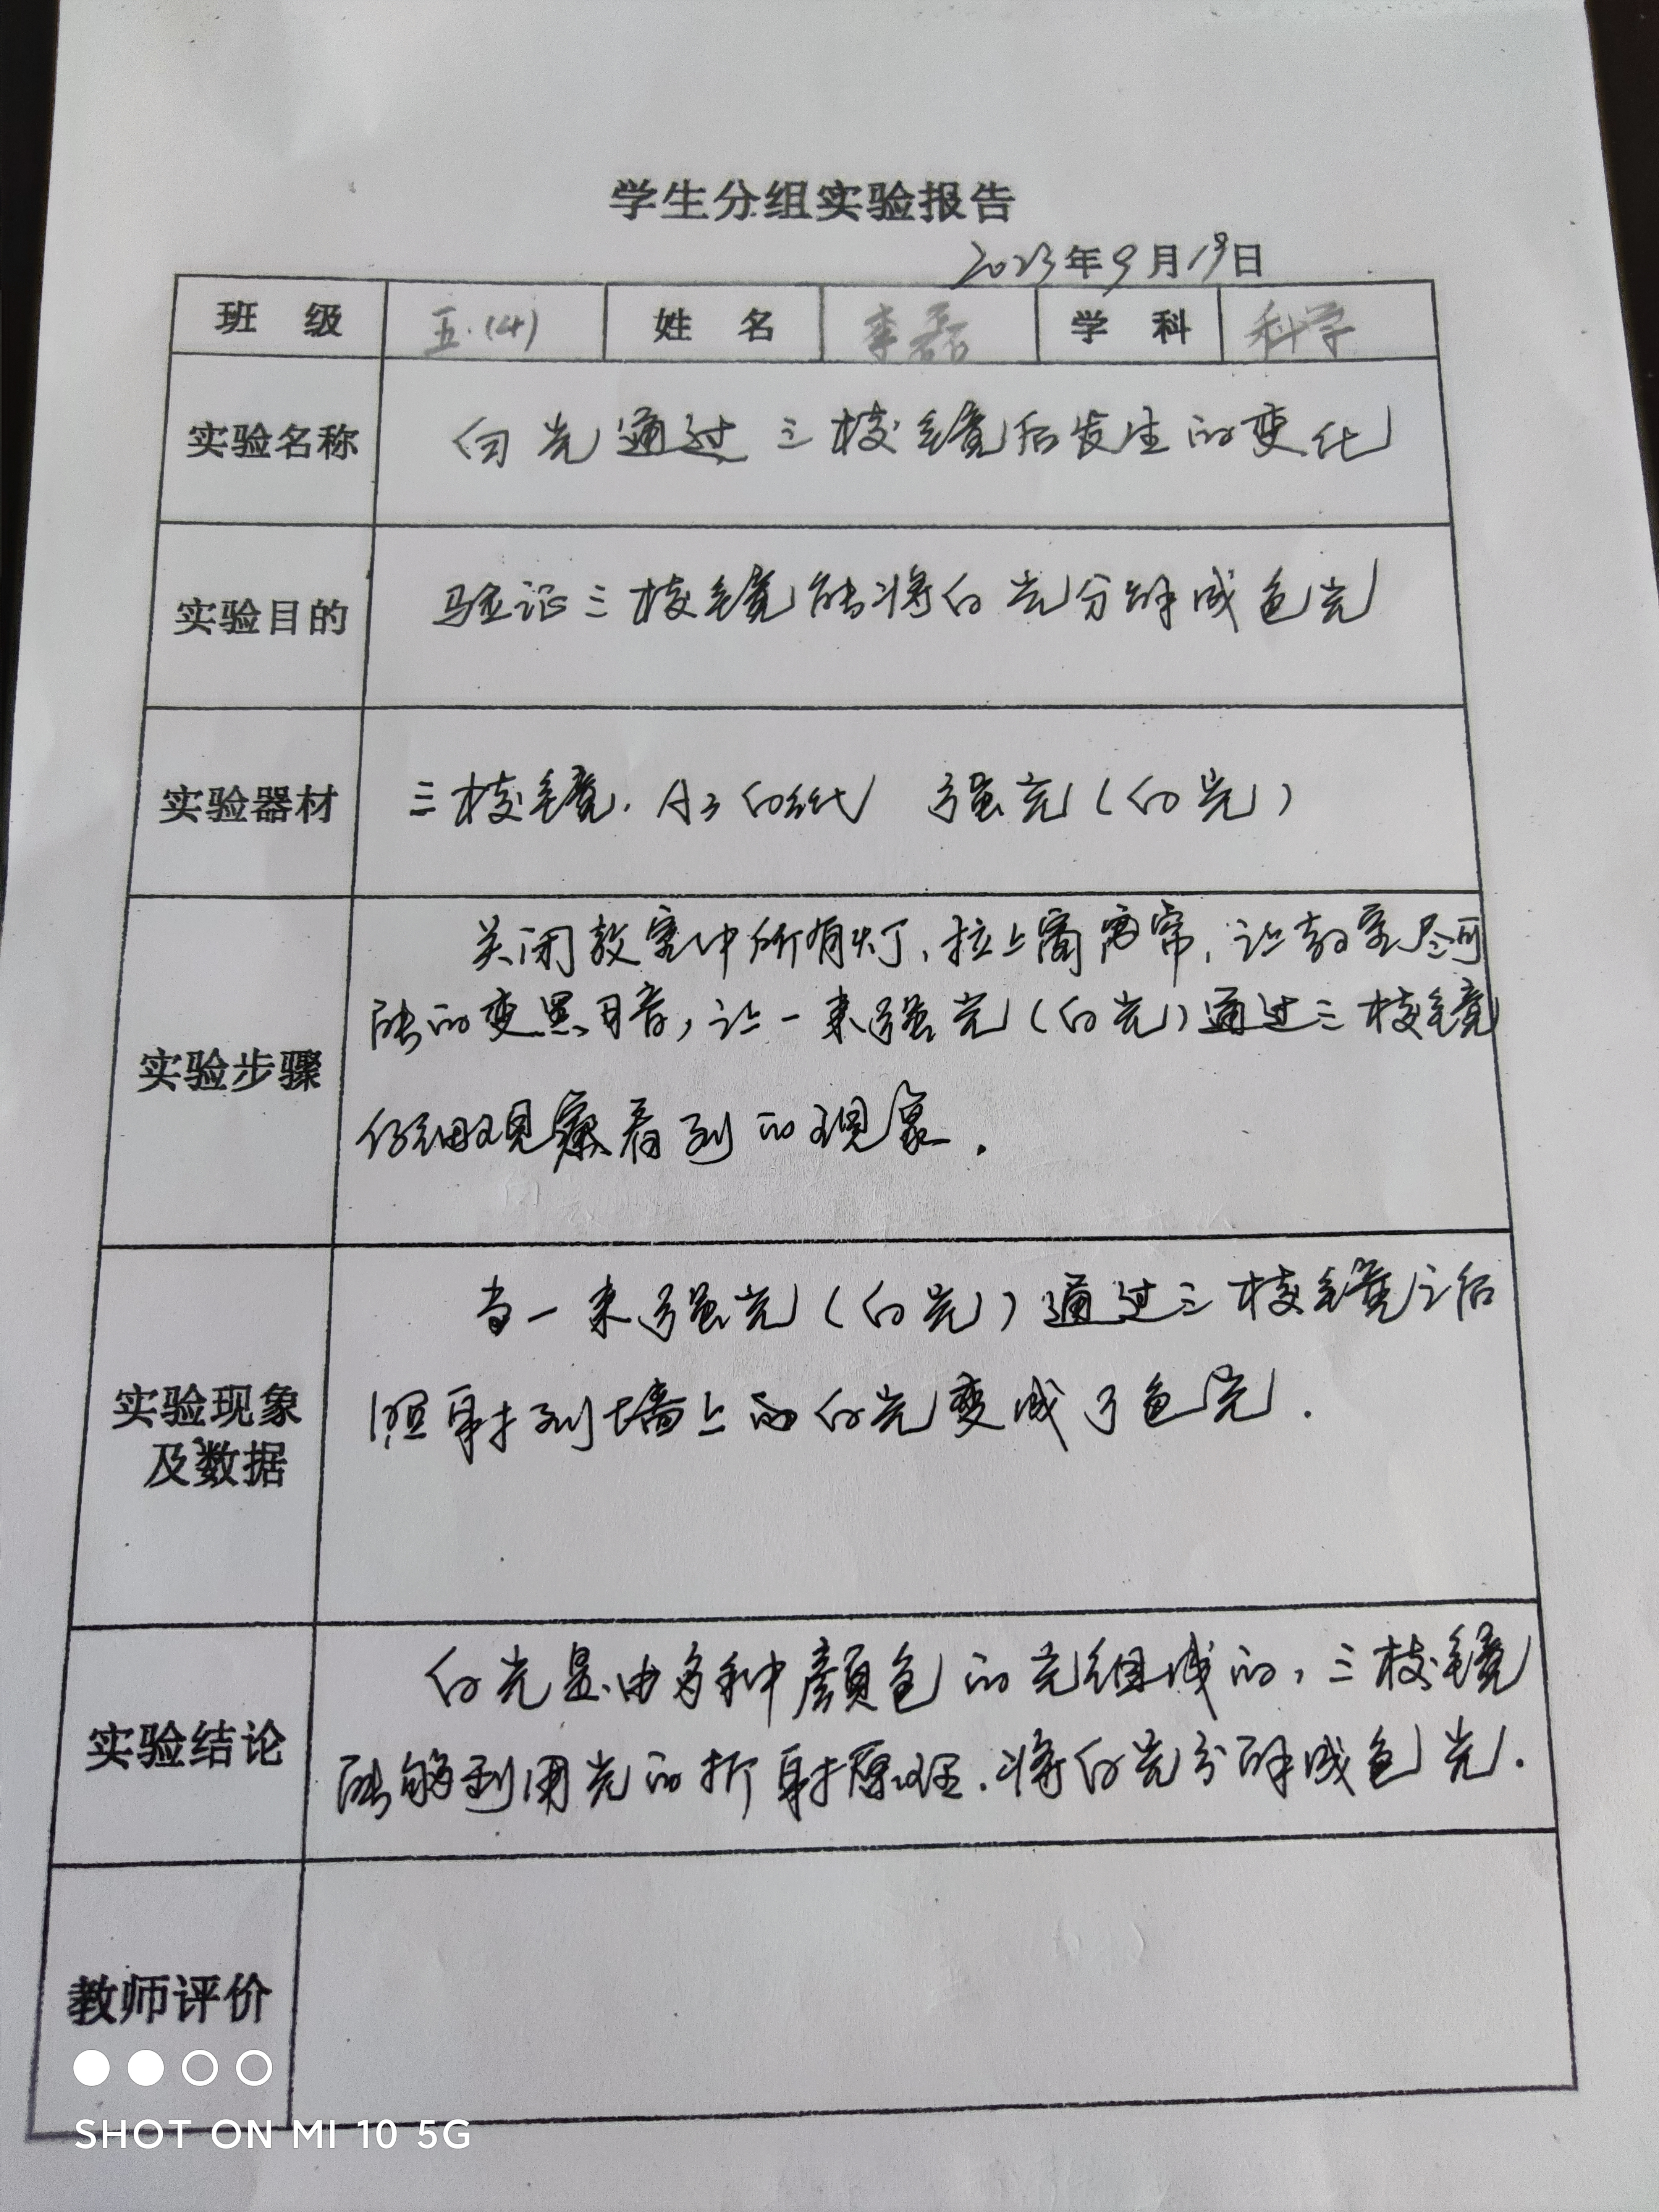 学生分组实验报告
2023年9月19日
班 级 五.(4) 姓 名 李磊 学 科 科学
实验名称 白光通过三棱镜后发生的变化
实验目的 验证三棱镜能将白光分解成色光
实验器材 三棱镜. A3白纸 强光(白光)
实验步骤
关闭教室中所有灯,拉上窗帘,让教室尽可
能的变黑暗,让一束强光(白光)通过三棱镜
仔细观察看到的现象.
实验现象
及数据
当一束强光(白光)通过三棱镜之后
照射到墙上的白光变成了色光.
实验结论
白光是由多种颜色的光组成的,三棱镜
能够利用光的折射原理.将白光分解成色光.
教师评价
SHOT ON MI 10 5G